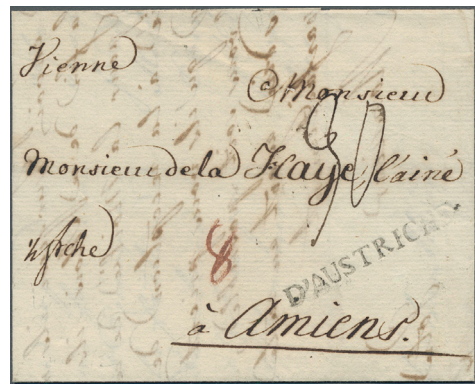 Vienne
A Monsieur
30
Monsieur de la Haye, l'ainé
8
D'AUSTRICHE
à Amiens.